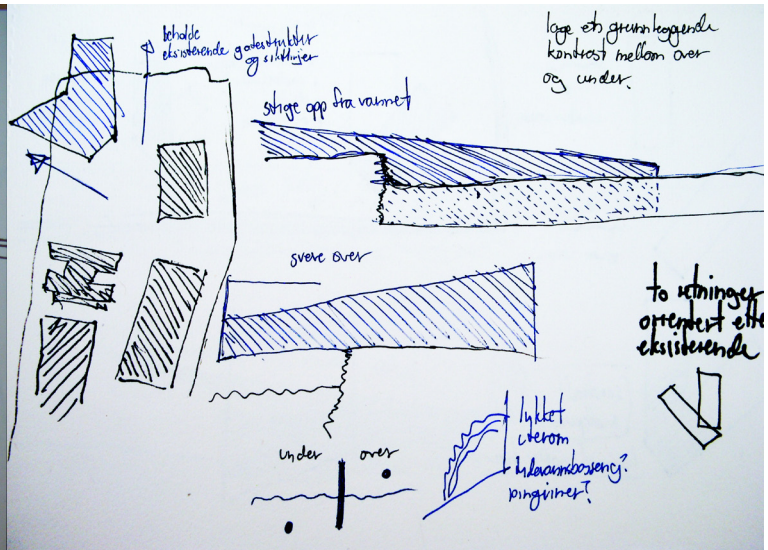 beholde
eksisterende gatestruktur
og siktlinjer
lage en grunnleggende
kontrast mellom over
og under.
stige opp fra vannet
sveve over
to retninger
orientert ette
eksisterende
under over
lykket
uterom
pingviner?